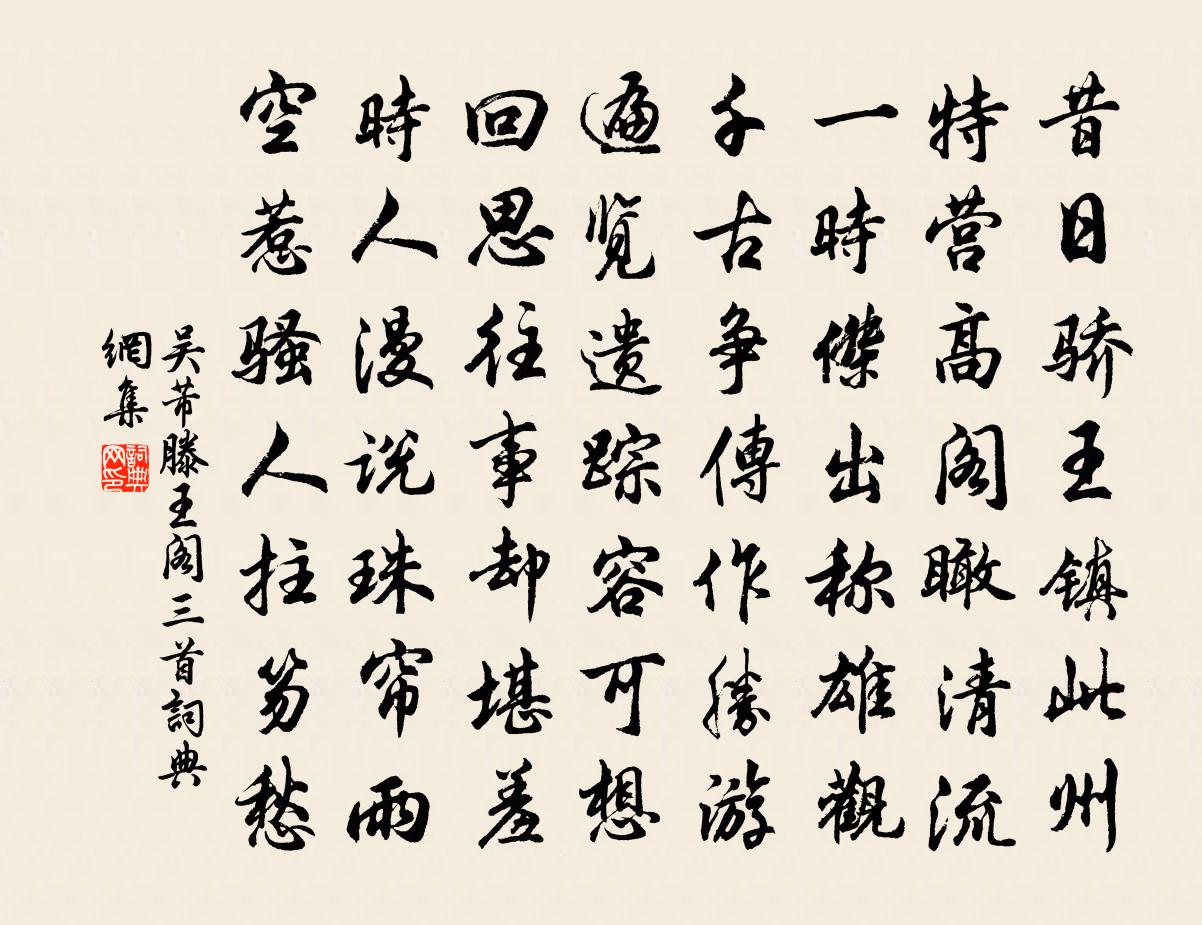 昔日骄王镇此州
特营高阁瞰清流
一時傑出称雄觀
千古争傳作勝游
遍览遗踪容可想
回思往事却堪羞
時人漫说珠帘雨
空惹骚人拄笏愁
吴芾滕王阁三首詞典
網集
詞典网印